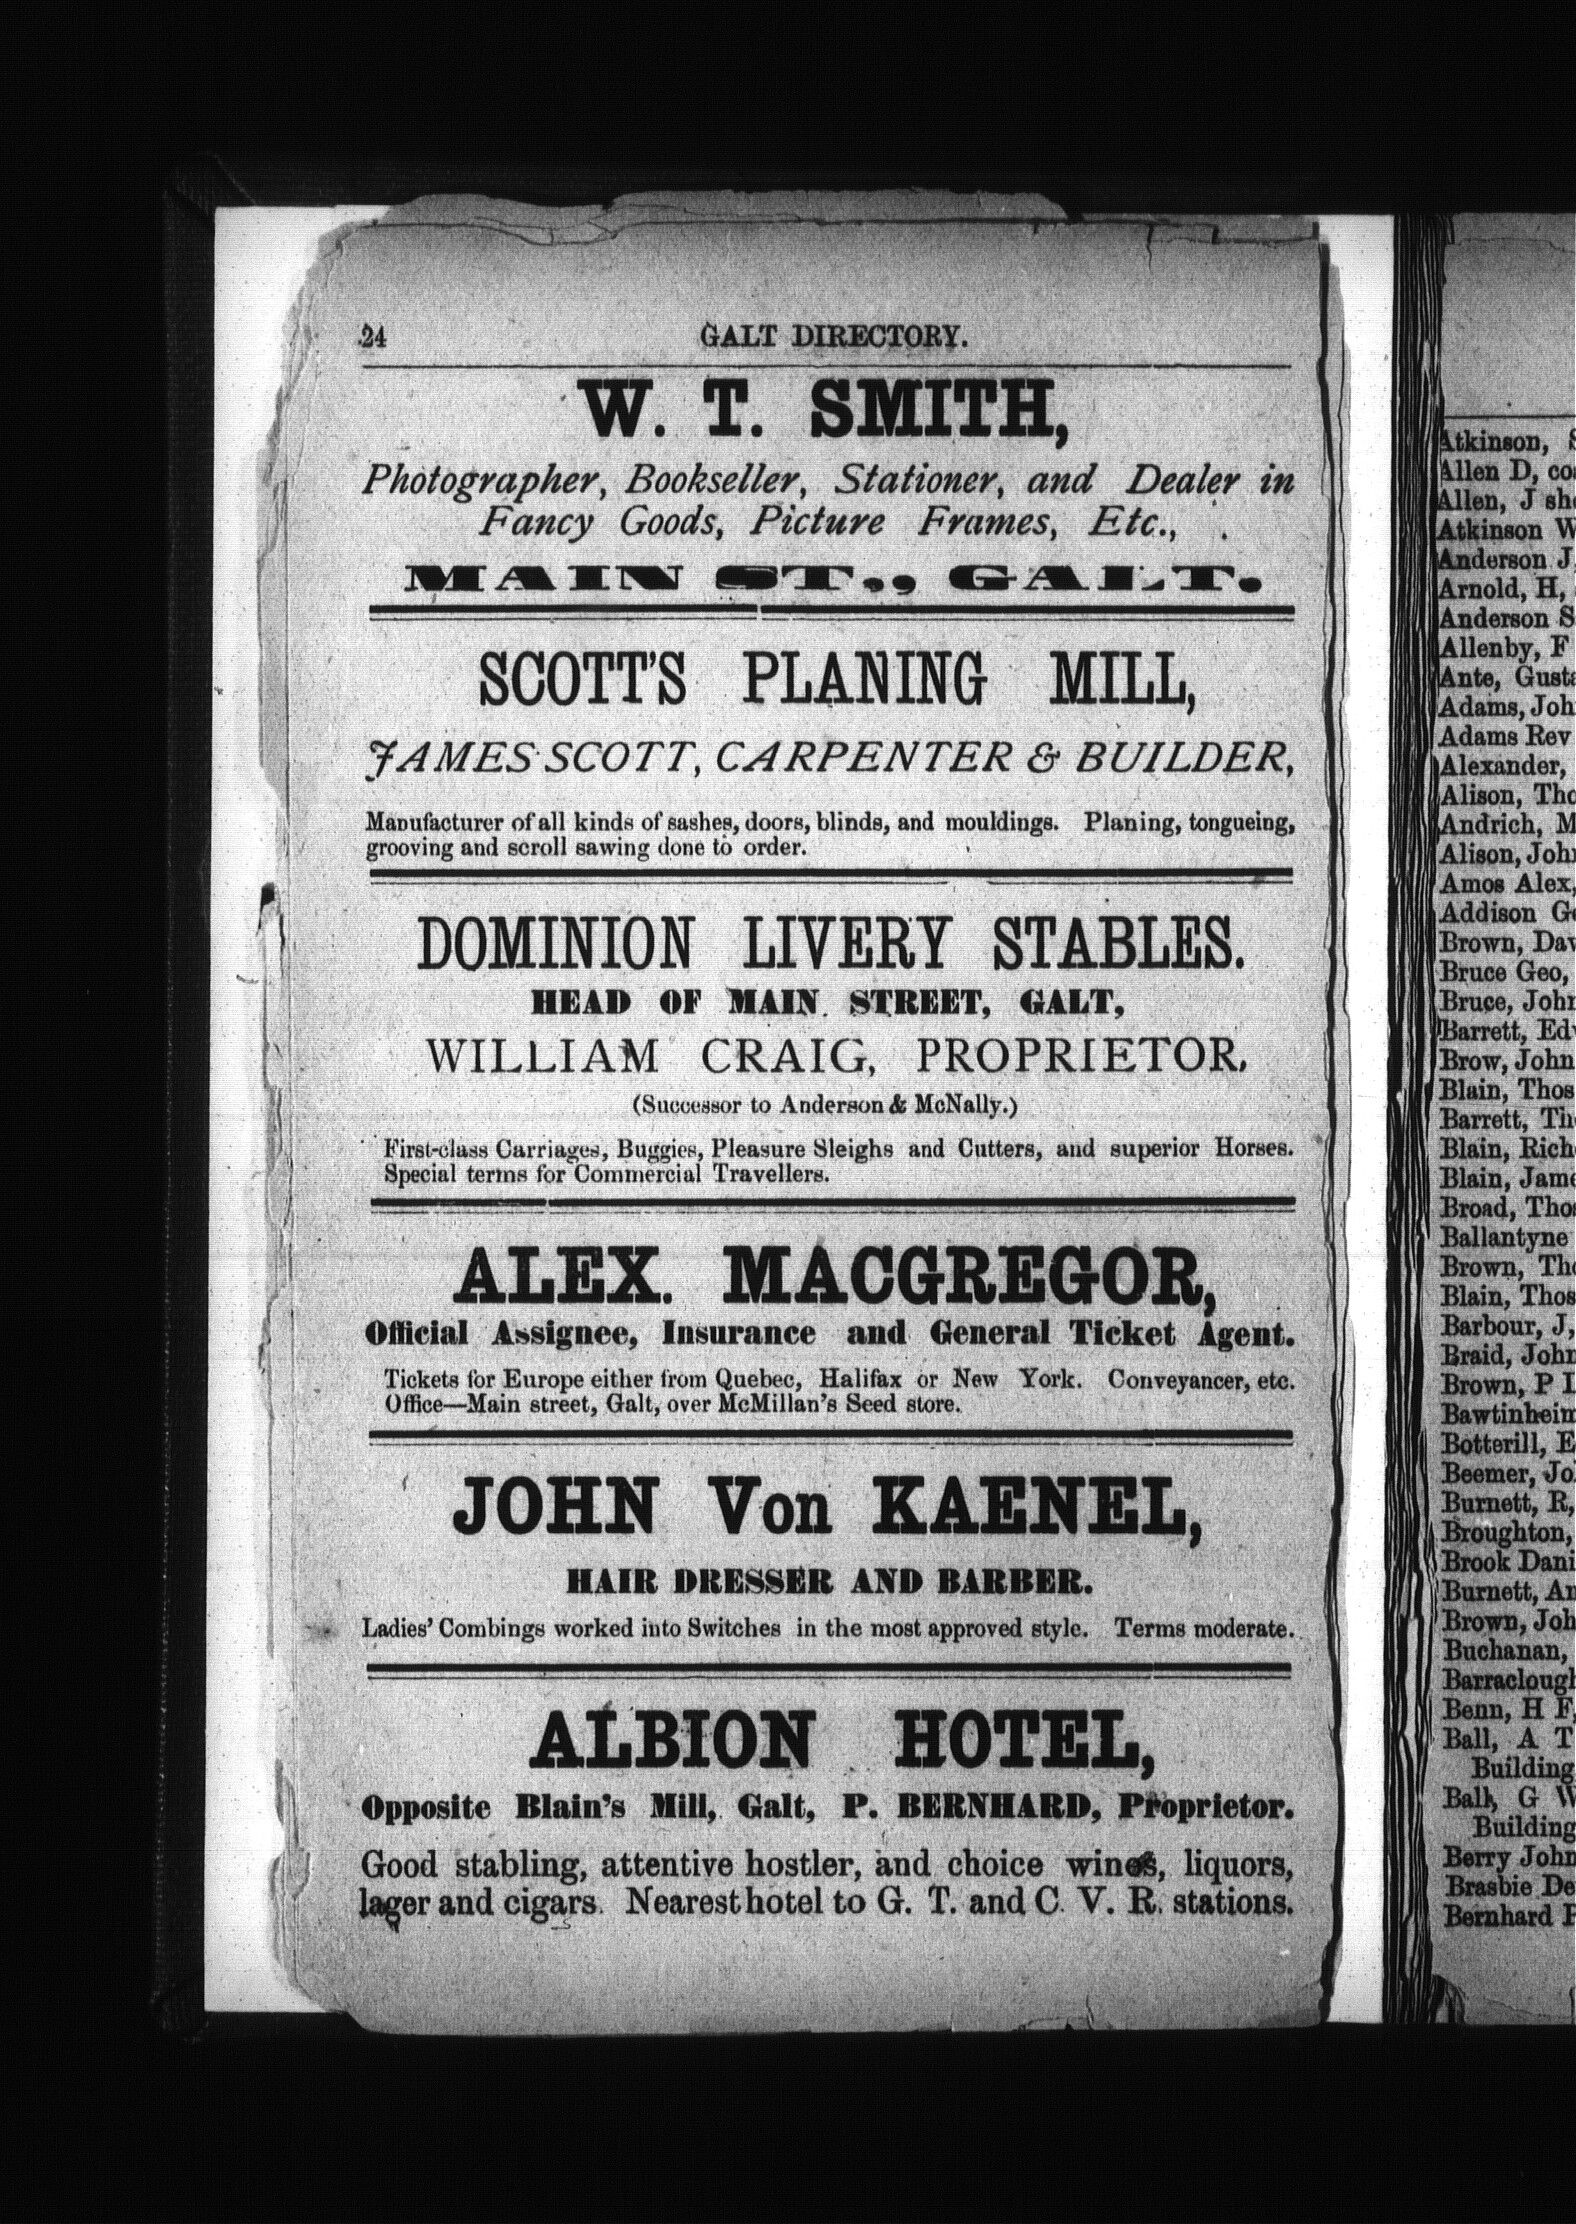 24 GALT DIRECTORY.
W. T. SMITH,
Photographer, Bookseller, Stationer, and Dealer in
Fancy Goods, Picture Frames, Etc.,
MAIN ST., GALT.
SCOTT'S PLANING MILL,
JAMES SCOTT, CARPENTER & BUILDER,
Manufacturer of all kinds of sashes, doors, blinds, and mouldings. Planing, tongueing,
grooving and scroll sawing done to order.
DOMINION LIVERY STABLES.
HEAD OF MAIN STREET, GALT,
WILLIAM CRAIG, PROPRIETOR,
(Successor to Anderson & McNally.)
First-class Carriages, Buggies, Pleasure Sleighs and Cutters, and superior Horses.
Special terms for Commercial Travellers.
ALEX. MACGREGOR,
Official Assignee, Insurance and General Ticket Agent.
Tickets for Europe either from Quebec, Halifax or New York. Conveyancer, etc.
Office—Main street, Galt, over McMillan's Seed store.
JOHN Von KAENEL,
HAIR DRESSER AND BARBER.
Ladies' Combings worked into Switches in the most approved style. Terms moderate.
ALBION HOTEL,
Opposite Blain's Mill, Galt, P. BERNHARD, Proprietor.
Good stabling, attentive hostler, and choice wines, liquors,
lager and cigars. Nearest hotel to G. T. and C. V. R. stations.
Atkinson,
Allen D,
Allen, J
Atkinson W
Anderson J,
Arnold, H,
Anderson S
Allenby, F
Ante,
Adams,
Adams Rev
Alexander,
Alison,
Andrich, M
Alison,
Amos Alex,
Addison
Brown,
Bruce Geo,
Bruce,
Barrett,
Brow, John
Blain, Thos
Barrett,
Blain,
Blain,
Broad,
Ballantyne
Brown,
Blain, Thos
Barbour, J,
Braid,
Brown, P
Bawtinheim
Botterill, E
Beemer,
Burnett, R,
Broughton,
Brook
Burnett,
Brown,
Buchanan,
Barraclough
Benn, H F,
Ball, A T
Building
Ball, G W
Building
Berry John
Brasbie
Bernhard